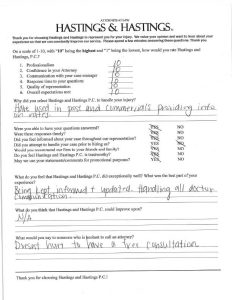 ATTORNEYS AT LAW
HASTINGS & HASTINGS
Thank you for choosing Hastings and Hastings to represent you for your injury. We value your opinion and want to hear about your
experience so that we can constantly improve our service. Please spend a few minutes answering these questions. Thank you
On a scale of 1-10, with "10" being the highest and "1" being the lowest, how would you rate Hastings and
Hastings, P.C.?
1. Professionalism 10
2. Confidence in your Attorney 10
3. Communication with your case manager 10
4. Response time to your questions 10
5. Quality of representation 10
6. Overall expectations met 10
Why did you select Hastings and Hastings P.C. to handle your injury?
Have used in past and commercials providing info
on rates.
Were you able to have your questions answered? YES NO
Were there responses timely? YES NO
Did you feel informed about your case throughout our representation? YES NO
Did you attempt to handle your case prior to hiring us? YES NO
Would you recommend our firm to your friends and family? YES NO
Do you feel Hastings and Hastings P.C. is trustworthy? YES NO
May we use your statements/comments for promotional purposes? YES NO
What do you feel that Hastings and Hastings P.C. did exceptionally well? What was the best part of your
experience?
Being kept informed & updated. Handling all doctor
communication.
What do you think that Hastings and Hastings P.C. could improve upon?
N/A
What would you say to someone who is hesitant to call an attorney?
Doesn't hurt to have a free consultation.
Thank you for choosing Hastings and Hastings P.C.!